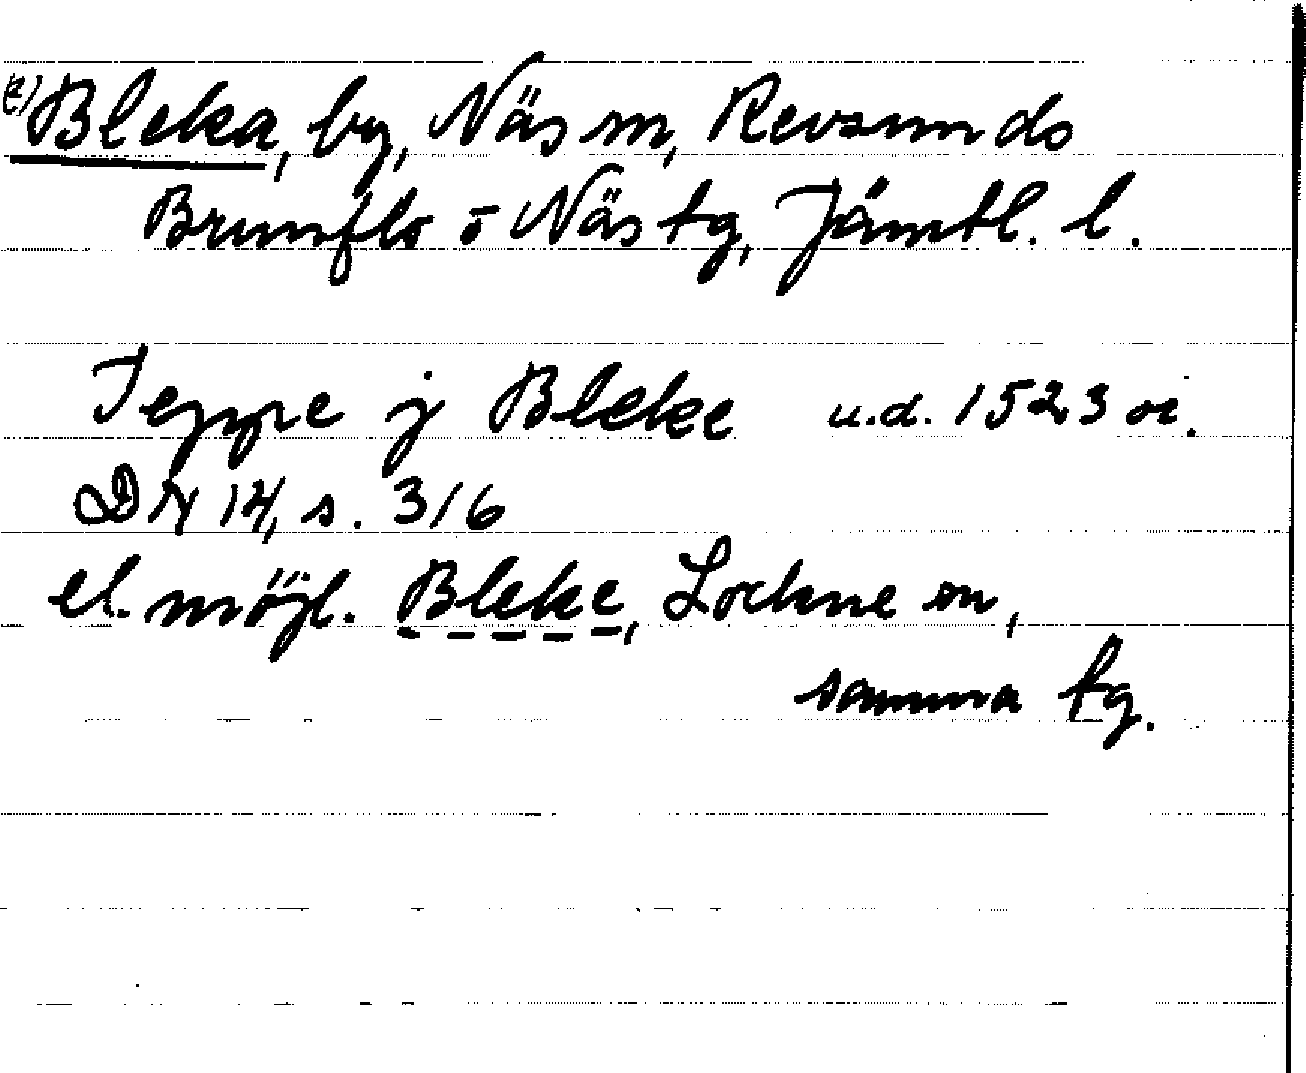 Bleka, by, Näs sn, Revsunds
Brunflo o Näs tg, Jämtl. l.
Jeppe j Bleke u.d. 1523 or.
DN 14, s. 316
el. möjl. Bleke, Lockne sn,
samma tg.